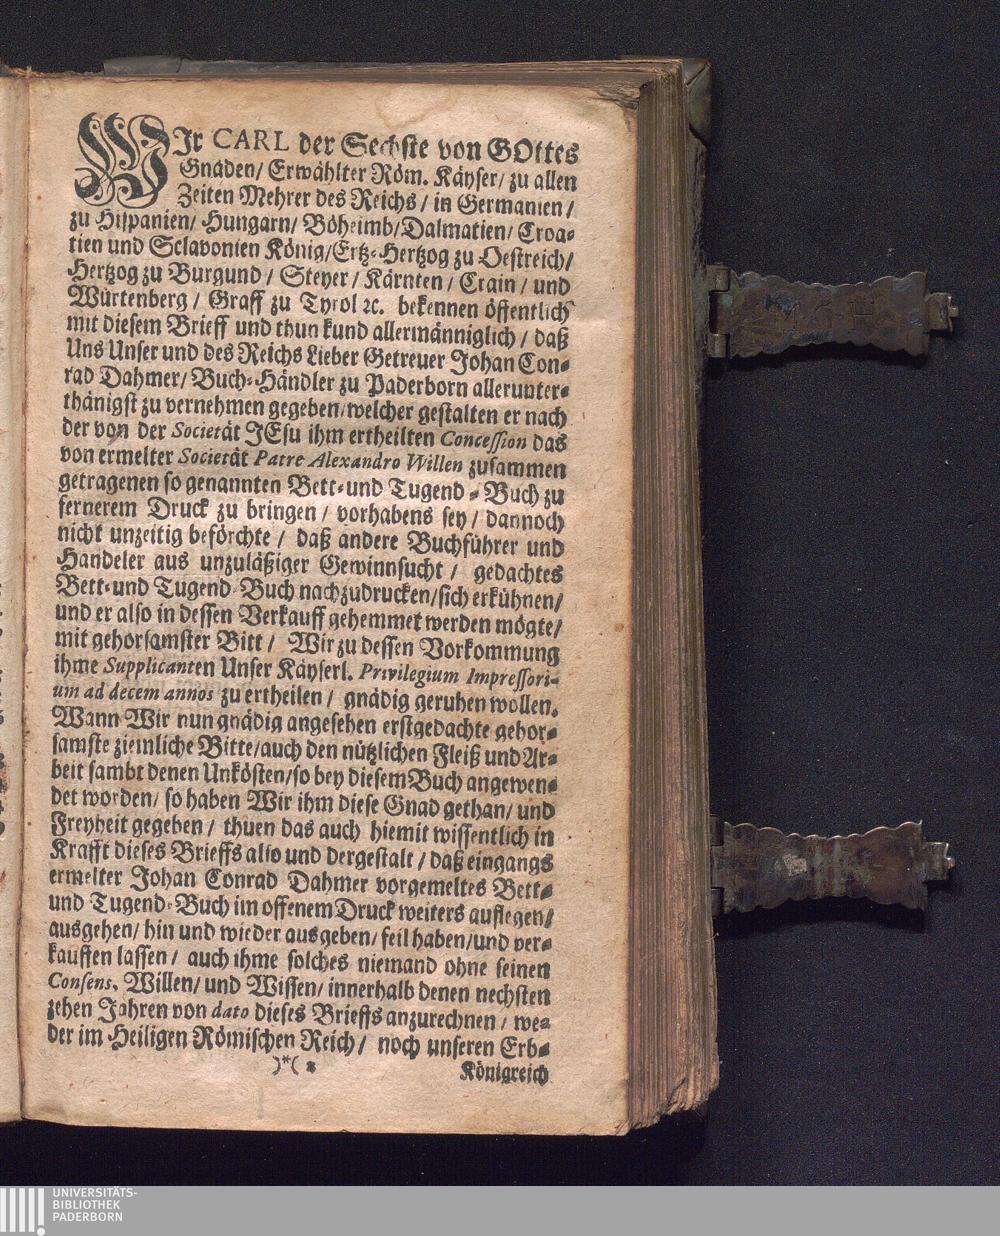 WIr CARL der Sechste von GOttes
Gnaden/ Erwählter Röm. Käyser/ zu allen
Zeiten Mehrer des Reichs / in Germanien /
zu Hispanien/ Hungarn/ Böheimb/ Dalmatien/ Croa-
tien und Sclavonien König/ Ertz-Hertzog zu Oestreich/
Hertzog zu Burgund / Steyer/ Kärnten / Crain / und
Würtenberg / Graff zu Tyrol ꝛc. bekennen öffentlich
mit diesem Brieff und thun kund allermänniglich / daß
Uns Unser und des Reichs Lieber Getreuer Johan Con-
rad Dahmer/ Buch-Händler zu Paderborn allerunter-
thänigst zu vernehmen gegeben/ welcher gestalten er nach
der von der Societät JEsu ihm ertheilten Concession das
von ermelter Societät Patre Alexandro Willen zusammen
getragenen so genannten Bett-und Tugend-Buch zu
fernerem Druck zu bringen / vorhabens sey / dannoch
nicht unzeitig beförchte / daß andere Buchführer und
Handeler aus unzuläßiger Gewinnsucht / gedachtes
Bett-und Tugend-Buch nachzudrucken/ sich erkühnen/
und er also in dessen Verkauff gehemmet werden mögte/
mit gehorsamster Bitt / Wir zu dessen Vorkommung
ihme Supplicanten Unser Käyserl. Privilegium Impressori-
um ad decem annos zu ertheilen / gnädig geruhen wollen.
Wann Wir nun gnädig angesehen erstgedachte gehor-
samste ziemliche Bitte/ auch den nützlichen Fleiß und Ar-
beit sambt denen Unkösten/ so bey diesem Buch angewen-
det worden/ so haben Wir ihm diese Gnad gethan/ und
Freyheit gegeben / thuen das auch hiemit wissentlich in
Krafft dieses Brieffs also und dergestalt / daß eingangs
ermelter Johan Conrad Dahmer vorgemeltes Bett-
und Tugend-Buch im offenem Druck weiters auflegen/
ausgehen/ hin und wieder ausgeben/ feil haben/ und ver-
kauffen lassen / auch ihme solches niemand ohne seinen
Consens, Willen/ und Wissen/ innerhalb denen nechsten
zehen Jahren von dato dieses Brieffs anzurechnen / we-
der im Heiligen Römischen Reich/ noch unseren Erb-
)*( 2 Königreich
UNIVERSITÄTS-
BIBLIOTHEK
PADERBORN